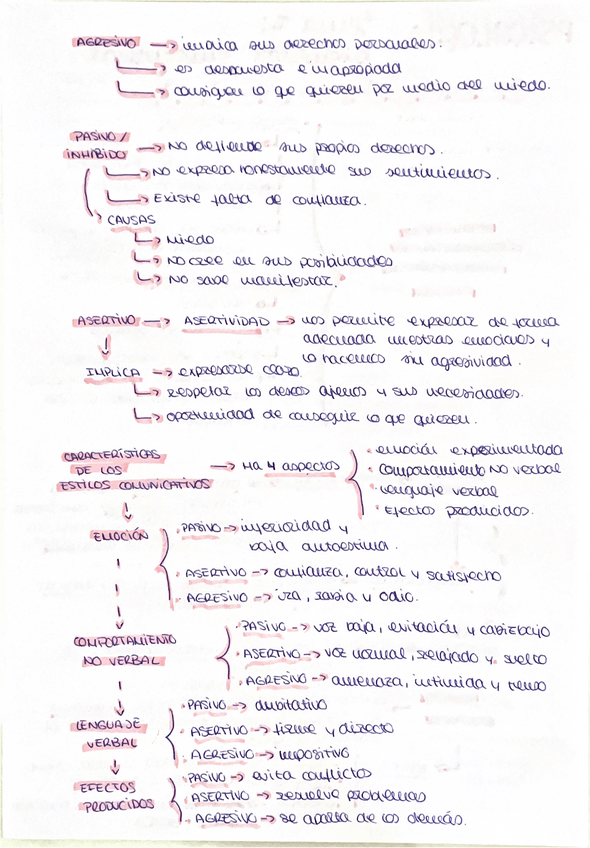 AGRESIVO → indica sus derechos personales.
→ es deshonesta e inapropiada
→ consiguen lo que quieren por medio del miedo.
PASIVO / INHIBIDO → No defiende sus propios derechos.
→ No expresa honestamente sus sentimientos.
→ Existe falta de confianza.
CAUSAS
→ Miedo
→ No cree en sus posibilidades
→ No sabe manifestar.
ASERTIVO → ASERTIVIDAD → nos permite expresar de forma
adecuada nuestras emociones y
lo hacemos sin agresividad.
IMPLICA → expresarse claro.
→ respetar los deseos ajenos y sus necesidades.
→ oportunidad de conseguir lo que quieren.
CARACTERÍSTICAS
DE LOS
ESTILOS COMUNICATIVOS → Ha 4 aspectos
· emoción experimentada
· comportamiento NO verbal
· lenguaje verbal
· Efectos producidos.
EMOCIÓN
· PASIVO → inferioridad y
baja autoestima.
· ASERTIVO → confianza, control y satisfecho
· AGRESIVO → ira, rabia y odio.
COMPORTAMIENTO
NO VERBAL
· PASIVO → voz baja, evitación y cabizbajo
· ASERTIVO → voz normal, relajado y suelto
· AGRESIVO → amenaza, intimida y tenso
LENGUAJE
VERBAL
· PASIVO → dubitativo
· ASERTIVO → firme y directo
· AGRESIVO → impositivo
EFECTOS
PRODUCIDOS
· PASIVO → evita conflictos
· ASERTIVO → resuelve problemas
· AGRESIVO → se aparta de los demás.